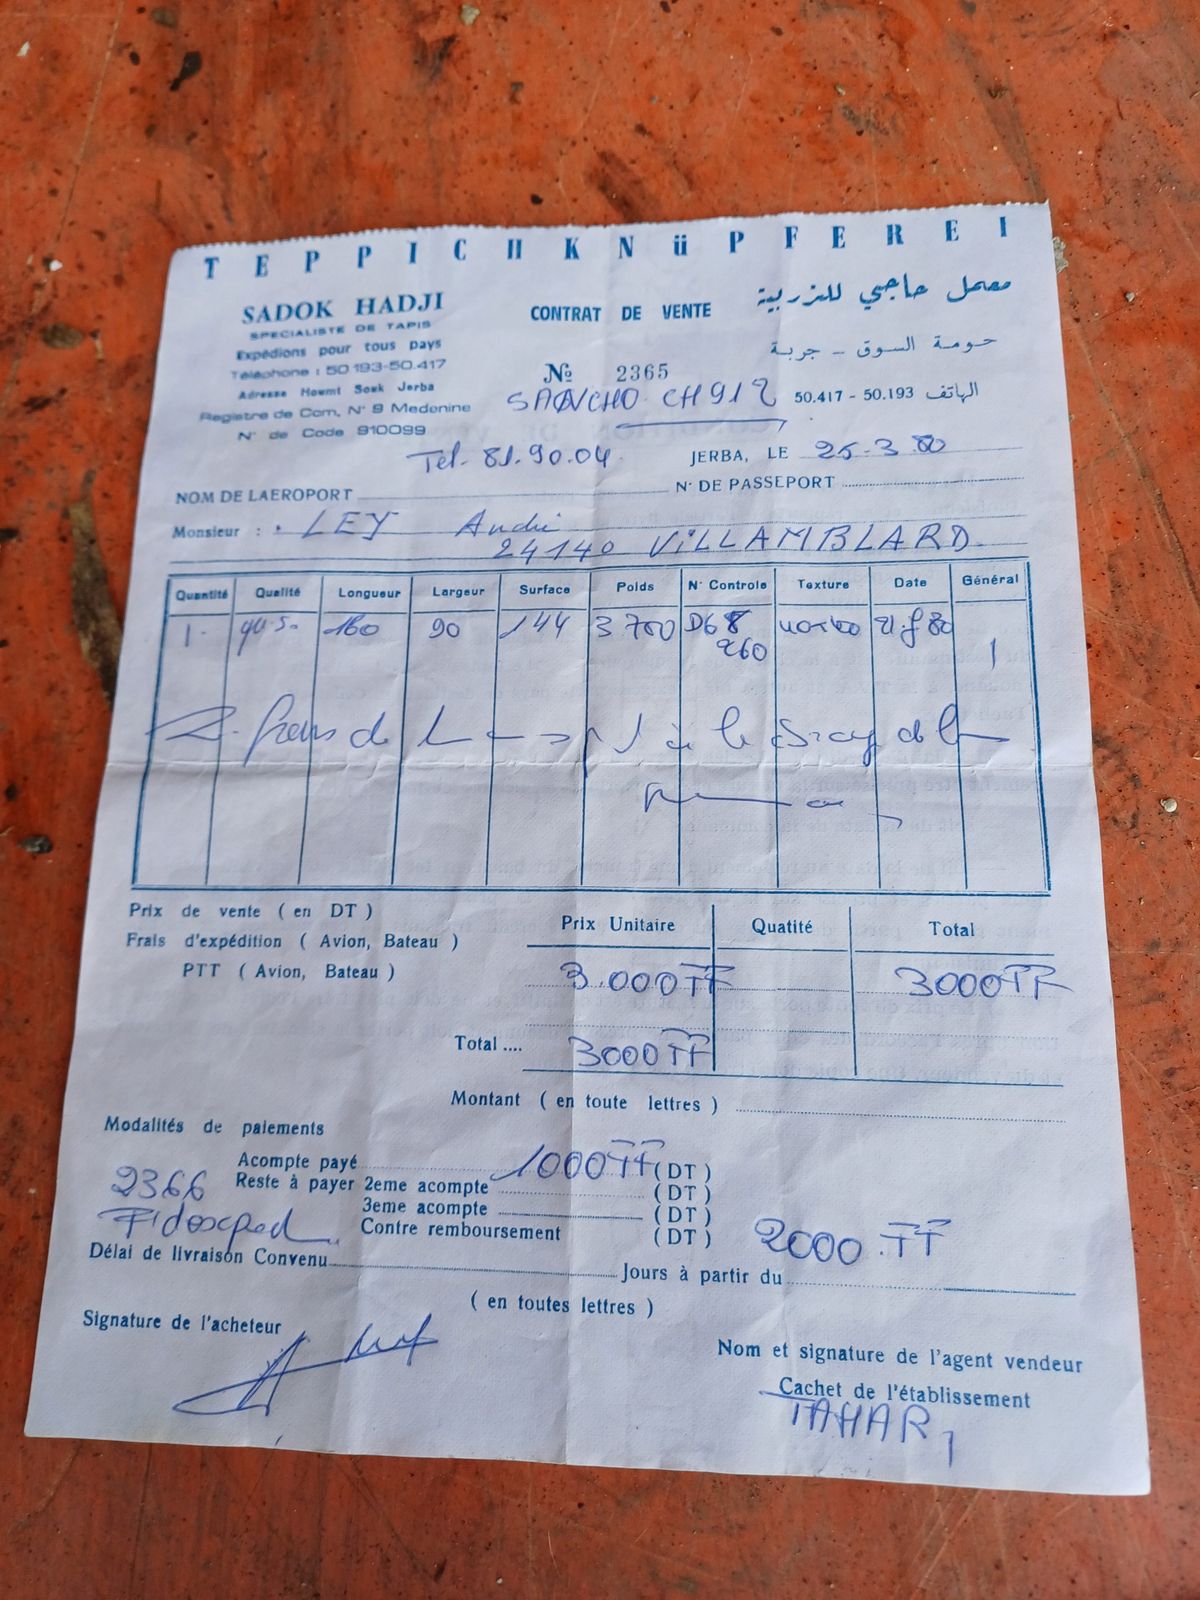 TEPPICHKNüPFEREI
SADOK HADJI
SPECIALISTE DE TAPIS
Expédions pour tous pays
Téléphone : 50 193-50.417
Adresse Houmt Souk Jerba
Registre de Com. N° 9 Medenine
N° de Code 910099
CONTRAT DE VENTE
No 2365
SANCHO CH912
معمل حاجي للزربية
حومة السوق - جربة
الهاتف 50.193 - 50.417
Tel. 81.90.04
JERBA, LE 25-3.80
NOM DE LAEROPORT
N° DE PASSEPORT
Monsieur : LEY André
24140 VILLAMBLARD
Quantité Qualité Longueur Largeur Surface Poids N° Controle Texture Date Général
1 160 90 144 3 700 1
260
frais de à la
Prix de vente ( en DT )
Frais d'expédition ( Avion, Bateau )
PTT ( Avion, Bateau )
Prix Unitaire Quatité Total
3.000FF 3000FF
Total .... 3000FF
Montant ( en toute lettres )
Modalités de paiements
Acompte payé 1000FF (DT)
2366
Reste à payer 2eme acompte (DT)
3eme acompte (DT)
Contre remboursement (DT) 2000.FF
Délai de livraison Convenu Jours à partir du
( en toutes lettres )
Signature de l'acheteur
Nom et signature de l'agent vendeur
Cachet de l'établissement
TAHAR